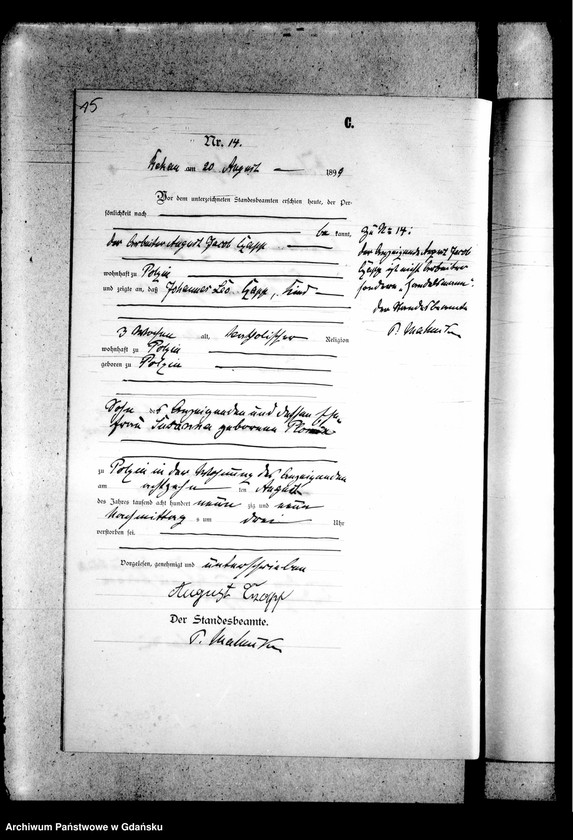 15
C.
Nr. 14.
am 20 August — 1899
Vor dem unterzeichneten Standesbeamten erschien heute, der Per-
sönlichkeit nach
be kannt,
der Arbeiter August Jacob Czapp
wohnhaft zu Polzin
und zeigte an, daß Johannes Leo Czapp, Kind
3 Wochen alt, katholischer Religion
wohnhaft zu Polzin
geboren zu Polzin
Sohn des Anzeigenden und dessen Ehe-
frau Susanna geborene
zu Polzin in der Wohnung des Anzeigenden
am achtzehn ten August
des Jahres tausend acht hundert neun zig und neun
Nachmittag s um drei Uhr
verstorben sei.
Vorgelesen, genehmigt und unterschrieben
August Czapp
Der Standesbeamte.
Zu No 14:
der Anzeigende August Jacob
Czapp ist nicht Arbeiter
sondern „Handelsmann".
Der Standesbeamte
Archiwum Państwowe w Gdańsku